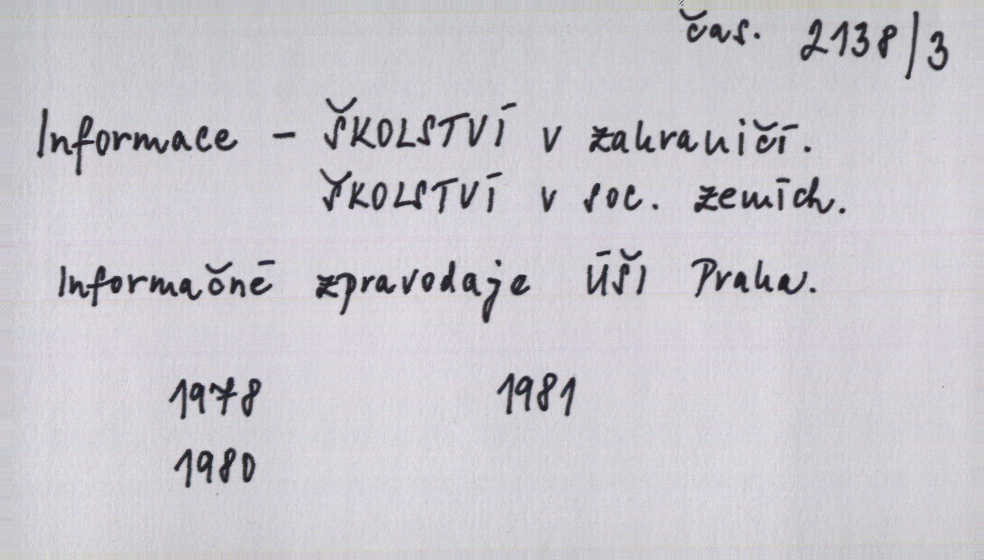 čas. 2138/3
Informace - ŠKOLSTVÍ v zahraničí.
ŠKOLSTVÍ v soc. zemích.
Informačné zpravodaje ÚŠI Praha.
1978 1981
1980